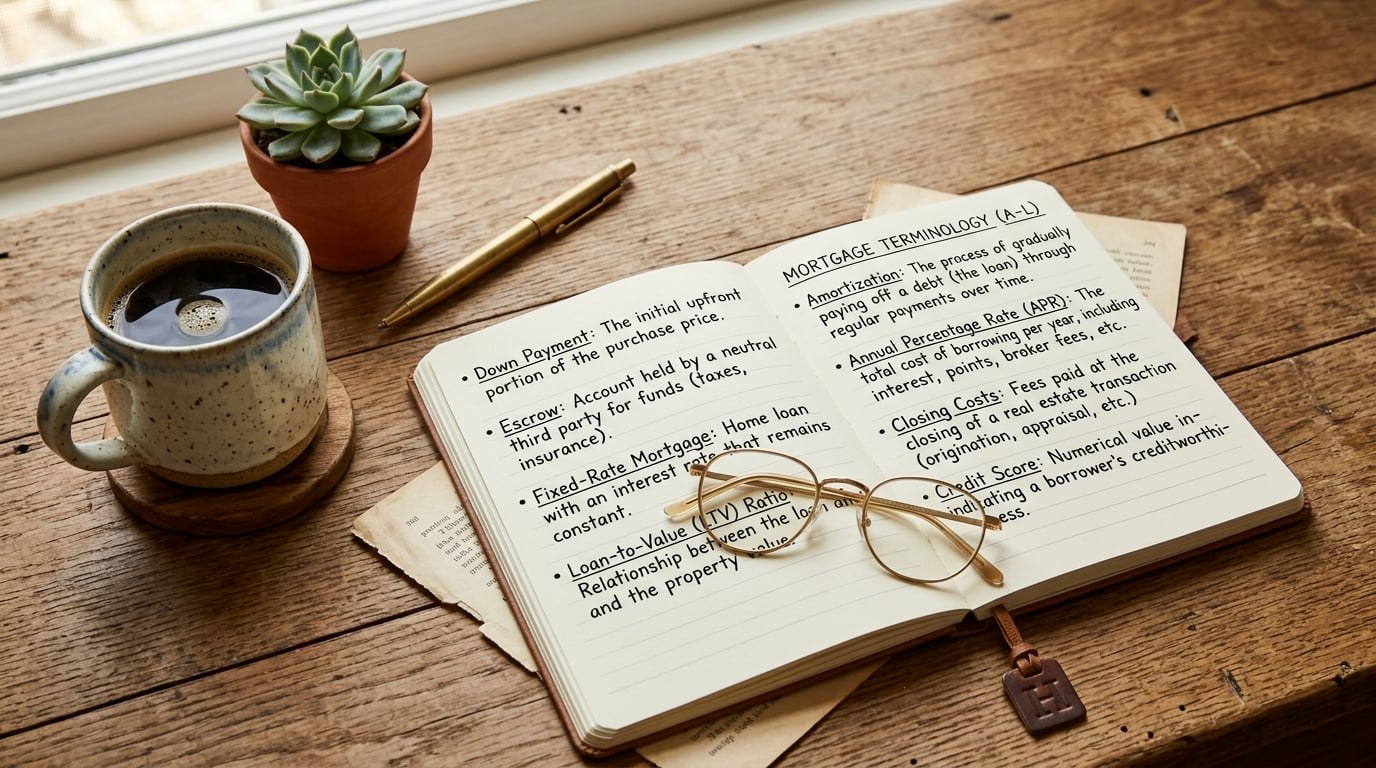 Down Payment: The initial upfront
portion of the purchase price.
Escrow: Account held by a neutral
third party for funds (taxes,
insurance).
Fixed-Rate Mortgage: Home loan
with an interest rate that remains
constant.
Loan-to-Value (LTV) Ratio:
Relationship between the loan and
and the property value.
MORTGAGE TERMINOLOGY (A-L)
Amortization: The process of gradually
paying off a debt (the loan) through
regular payments over time.
Annual Percentage Rate (APR): The
total cost of borrowing per year, including
interest, points, broker fees, etc.
Closing Costs: Fees paid at the
closing of a real estate transaction
(origination, appraisal, etc.)
Credit Score: Numerical value in-
dicating a borrower's creditworthi-
ness.
H